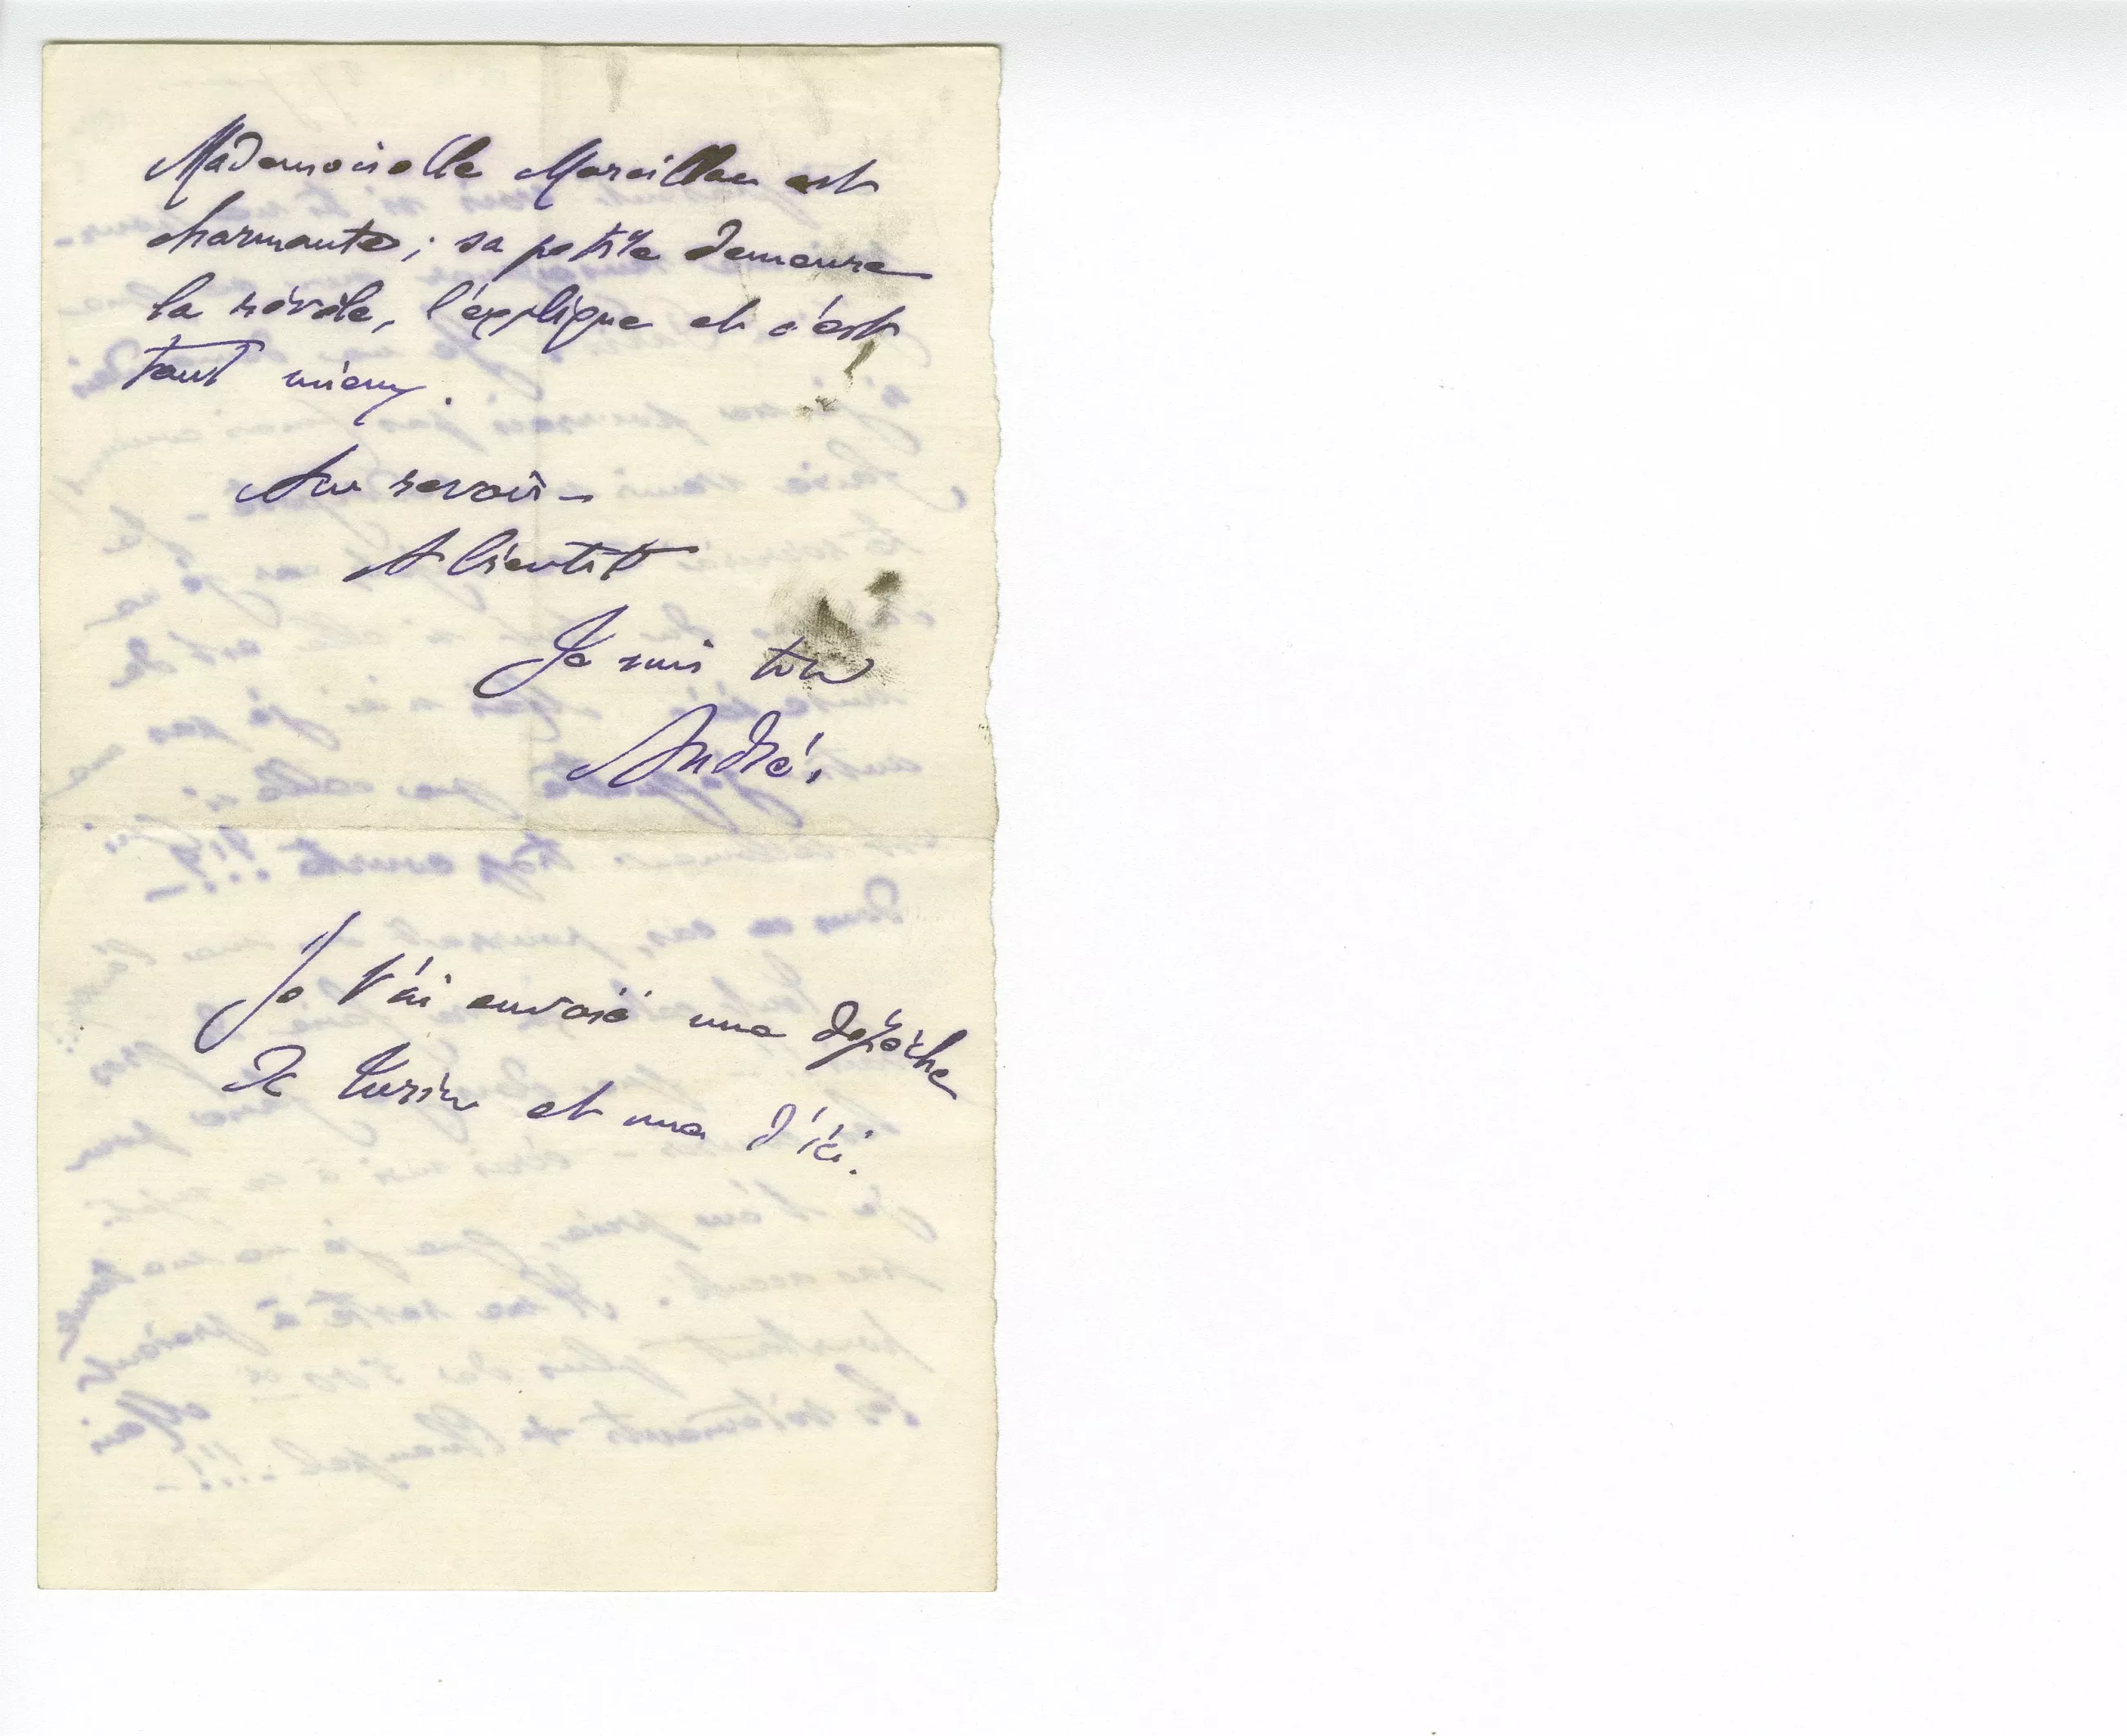 Mademoiselle Marcillac est
charmante ; sa petite demeure
la révèle, l'explique et c'est
tant mieux.
Au revoir –
A bientôt
Je suis ton
André.
Je t'ai envoié une dépêche
de Turin et une d'ici.